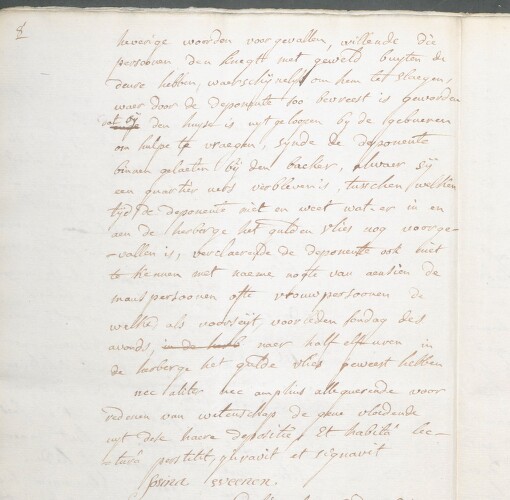 heverige woorden voorgevallen, willende die
persoonen den knegt met geweld buyten de
deure hebben, waerschijnelijk om hem te slaegen,
waer door de deponente soo bevreest is geworden
dat sij den huyse is uytgeloopen bij de gebueren
om hulpe te vraegen, sijnde de deponente
binnen gelaeten bij den backer, alwaer sij
een quartier uers verbleven is, tusschen welken
tyd de deponente niet en weet wat er in en
aen de herberge het gulden vlies nog voorge-
-vallen is, verclaerende de deponente ook niet
te kennen met naeme nogte van aensien de
manspersoonen ofte vrouwpersoonen de
welke als voorseijt, voorleden sondag des
avonds, in de herb naer half elf uren in
de herberge het gulde vlies geweest hebben
nec aliter nec amplius allegerende voor
redenen van wetenschap de gene vloeiende
uyt dese haere depositie, Et habitâ lec-
-turâ perstitit, juravit et signavit